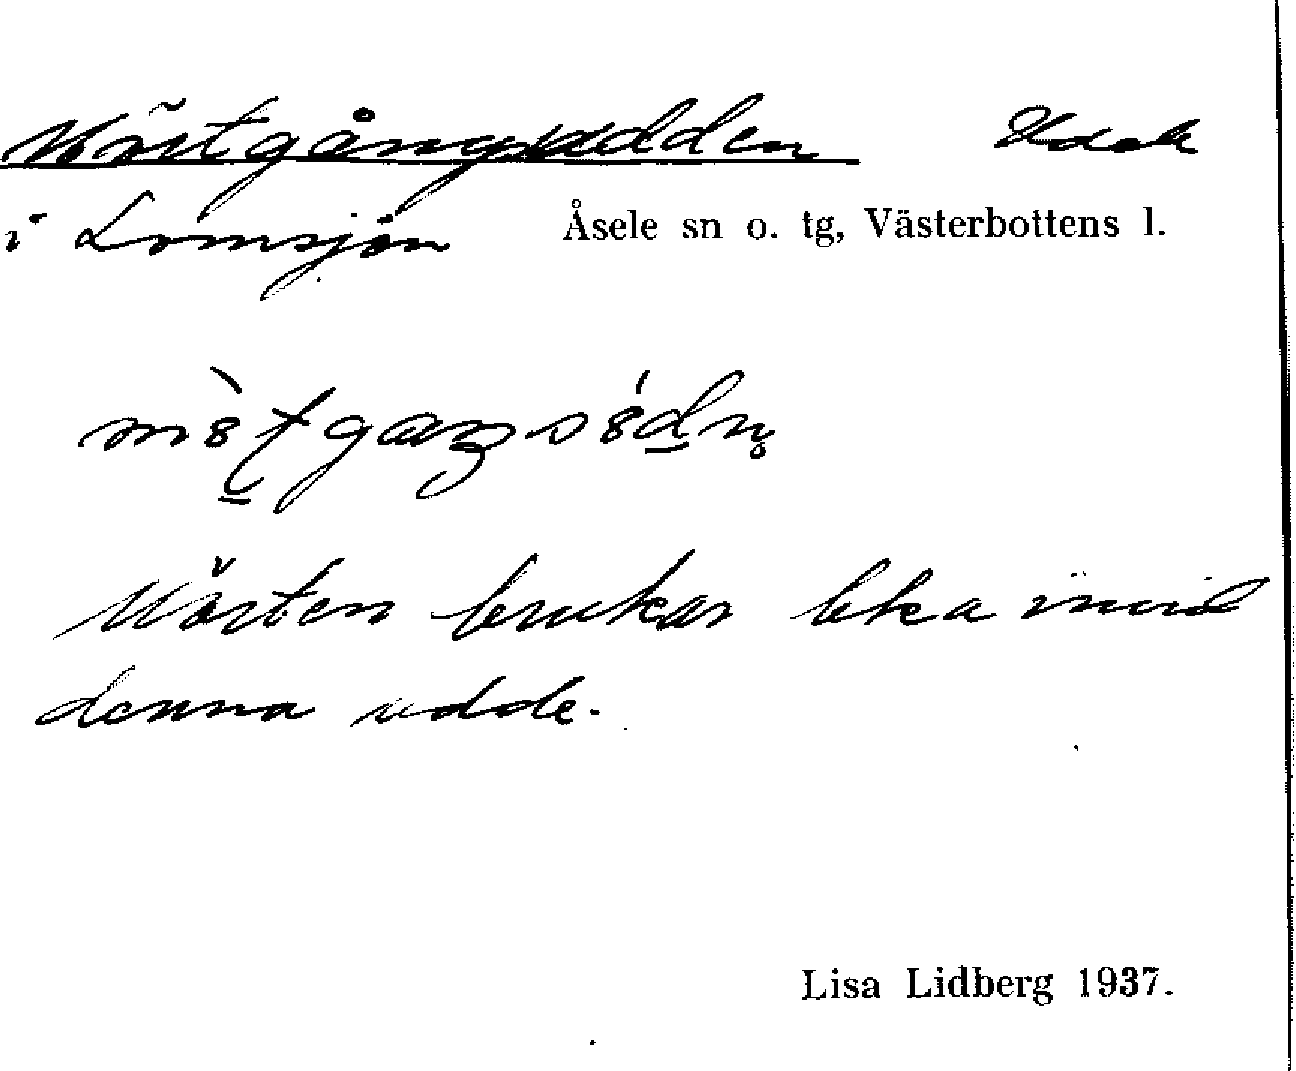 Mörtgångsudden Udde
i Lomsjön Åsele sn o. tg, Västerbottens l.
Mörten brukar leka invid
denna udde.
Lisa Lidberg 1937.